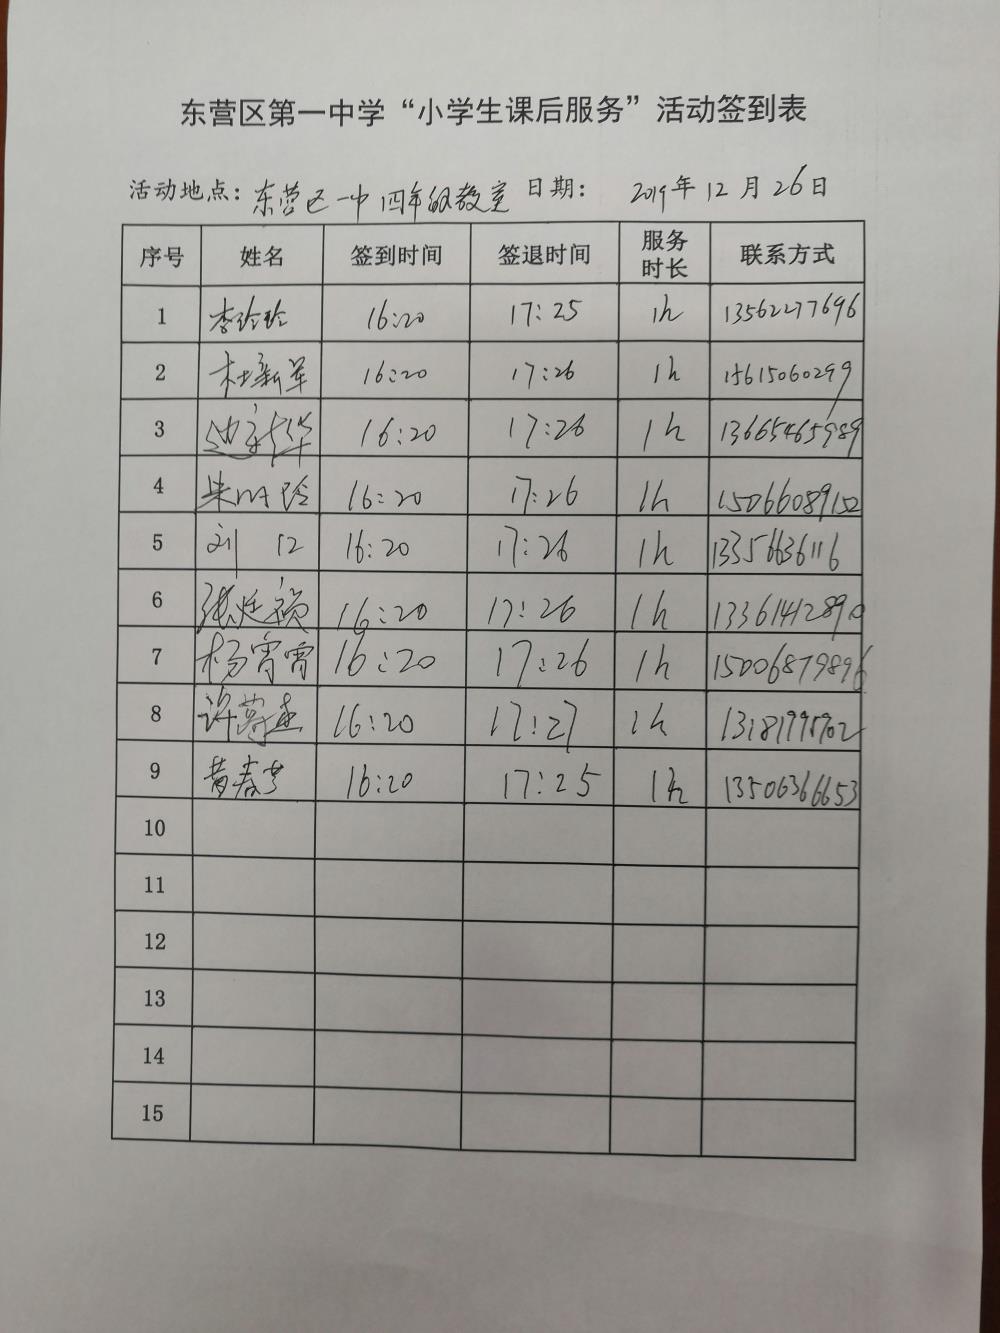 东营区第一中学“小学生课后服务”活动签到表
活动地点：东营区一中四年级教室 日期： 2019年12月26日
序号 姓名 签到时间 签退时间 服务时长 联系方式
1 李玲玲 16:20 17:25 1h 13562277696
2 杜新军 16:20 17:26 1h 15615060299
3 16:20 17:26 1h 13665465989
4 16:20 17:26 1h 15066089152
5 刘 16:20 17:26 1h 13356636116
6 张廷祯 16:20 17:26 1h
7 杨宵宵 16:20 17:26 1h 15006879896
8 许 16:20 17:27 1h
9 黄春芳 16:20 17:25 1h 13506366653
10
11
12
13
14
15